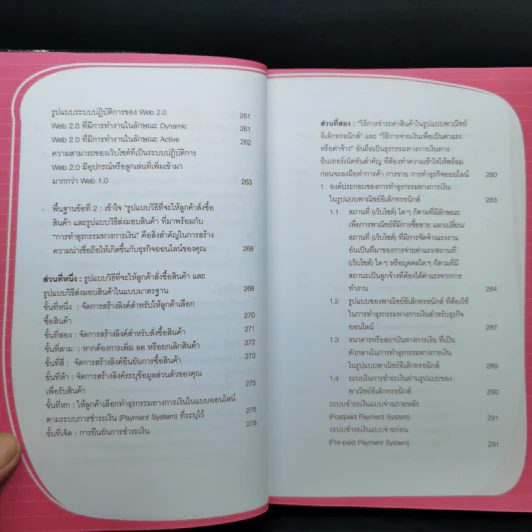 รูปแบบระบบปฏิบัติการของ Web 2.0 261
Web 2.0 ที่มีการทำงานในลักษณะ Dynamic 261
Web 2.0 ที่มีการทำงานในลักษณะ Active 262
ความสามารถของเว็บไซต์ที่เป็นระบบปฏิบัติการ
Web 2.0 มีอุปกรณ์หรือลูกเล่นที่เพิ่มเข้ามา
มากกว่า Web 1.0 263
- พื้นฐานข้อที่ 2 : เข้าใจ "รูปแบบวิธีที่จะให้ลูกค้าสั่งซื้อ
สินค้า และรูปแบบวิธีส่งมอบสินค้า ที่มาพร้อมกับ
"การทำธุรกรรมทางการเงิน" คือสิ่งสำคัญในการสร้าง
ความน่าเชื่อถือให้เกิดขึ้นกับธุรกิจออนไลน์ของคุณ 268
ส่วนที่หนึ่ง : รูปแบบวิธีที่จะให้ลูกค้าสั่งซื้อสินค้า และ
รูปแบบวิธีส่งมอบสินค้าในแบบมาตรฐาน 268
ขั้นที่หนึ่ง : จัดการสร้างลิงค์สำหรับให้ลูกค้าเลือก
ซื้อสินค้า 270
ขั้นที่สอง : จัดการสร้างลิงค์สำหรับสั่งซื้อสินค้า 271
ขั้นที่สาม : หากต้องการเพิ่ม ลด หรือยกเลิกสินค้า 272
ขั้นที่สี่ : จัดการสร้างลิงค์ยืนยันการซื้อสินค้า 273
ขั้นที่ห้า : จัดการสร้างลิงค์ระบุข้อมูลส่วนตัวของคุณ
เพื่อรับสินค้า 275
ขั้นที่หก : ให้ลูกค้าเลือกทำธุรกรรมทางการเงินในแบบออนไลน์
ตามระบบการชำระเงิน (Payment System) ที่ระบุไว้ 276
ขั้นที่เจ็ด : การยืนยันการชำระเงิน 278
ส่วนที่สอง : "วิธีการชำระค่าสินค้าในรูปแบบพาณิชย์
อิเล็กทรอนิกส์" และ "วิธีการจ่ายเงินเพื่อเป็นค่าแรง
หรือค่าจ้าง" อันถือเป็นธุรกรรมทางการเงินทาง
อินเทอร์เน็ตอันสำคัญ ที่ต้องทำความเข้าใจให้พร้อม
ก่อนจะลงมือทำการค้า การขาย การทำธุรกิจออนไลน์ 280
1. องค์ประกอบของการทำธุรกรรมทางการเงิน
ในรูปแบบพาณิชย์อิเล็กทรอนิกส์ 280
1.1 สถานที่ (เว็บไซต์) ใด ๆ ก็ตามที่มีลักษณะ
เพื่อการพาณิชย์มีการซื้อขาย แลกเปลี่ยน/
สถานที่ (เว็บไซต์) ที่มีการจัดจ้างแรงงาน
อันเป็นที่มาของการจ่ายค่าแรง/สถานที่
(เว็บไซต์) ใด ๆ หรือบุคคลใด ๆ ก็ตามที่มี
สถานะเป็นลูกจ้างที่ต้องได้ค่าแรงจากการ
ทำงาน 284
1.2 รูปแบบของพาณิชย์อิเล็กทรอนิกส์ ที่ต้องใช้
ในการทำธุรกรรมทางการเงินสำหรับธุรกิจ
ออนไลน์ 287
1.3 ธนาคารหรือสถาบันทางการเงิน ที่เป็น
ตัวกลางในการทำธุรกรรมทางการเงิน
ในรูปแบบพาณิชย์อิเล็กทรอนิกส์ 289
1.4 ระบบเงินการชำระเงินผ่านรูปแบบของ
พาณิชย์อิเล็กทรอนิกส์ 290
ระบบชำระเงินแบบจ่ายภายหลัง
(Postpaid Payment System) 291
ระบบชำระเงินแบบจ่ายก่อน
(Pre-paid Payment System) 291